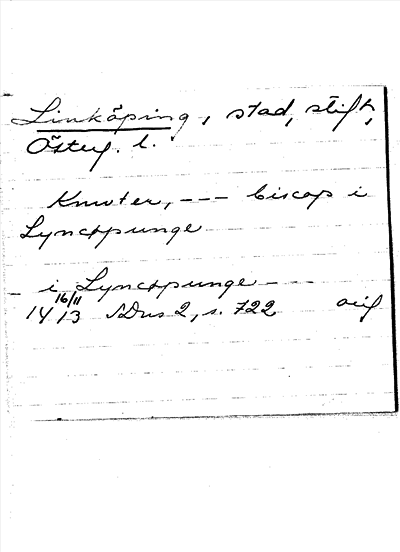 Linköping, stad, stift,
Österg. l.
Knwter, --- biscop i
Lyncøpunge
i Lyncøpunge ---
14 16/11 13 SDns 2, s. 722 orig